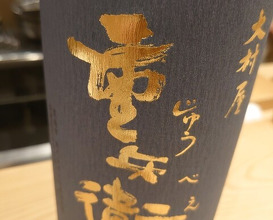 大村屋
じゅうべえ
重兵衛